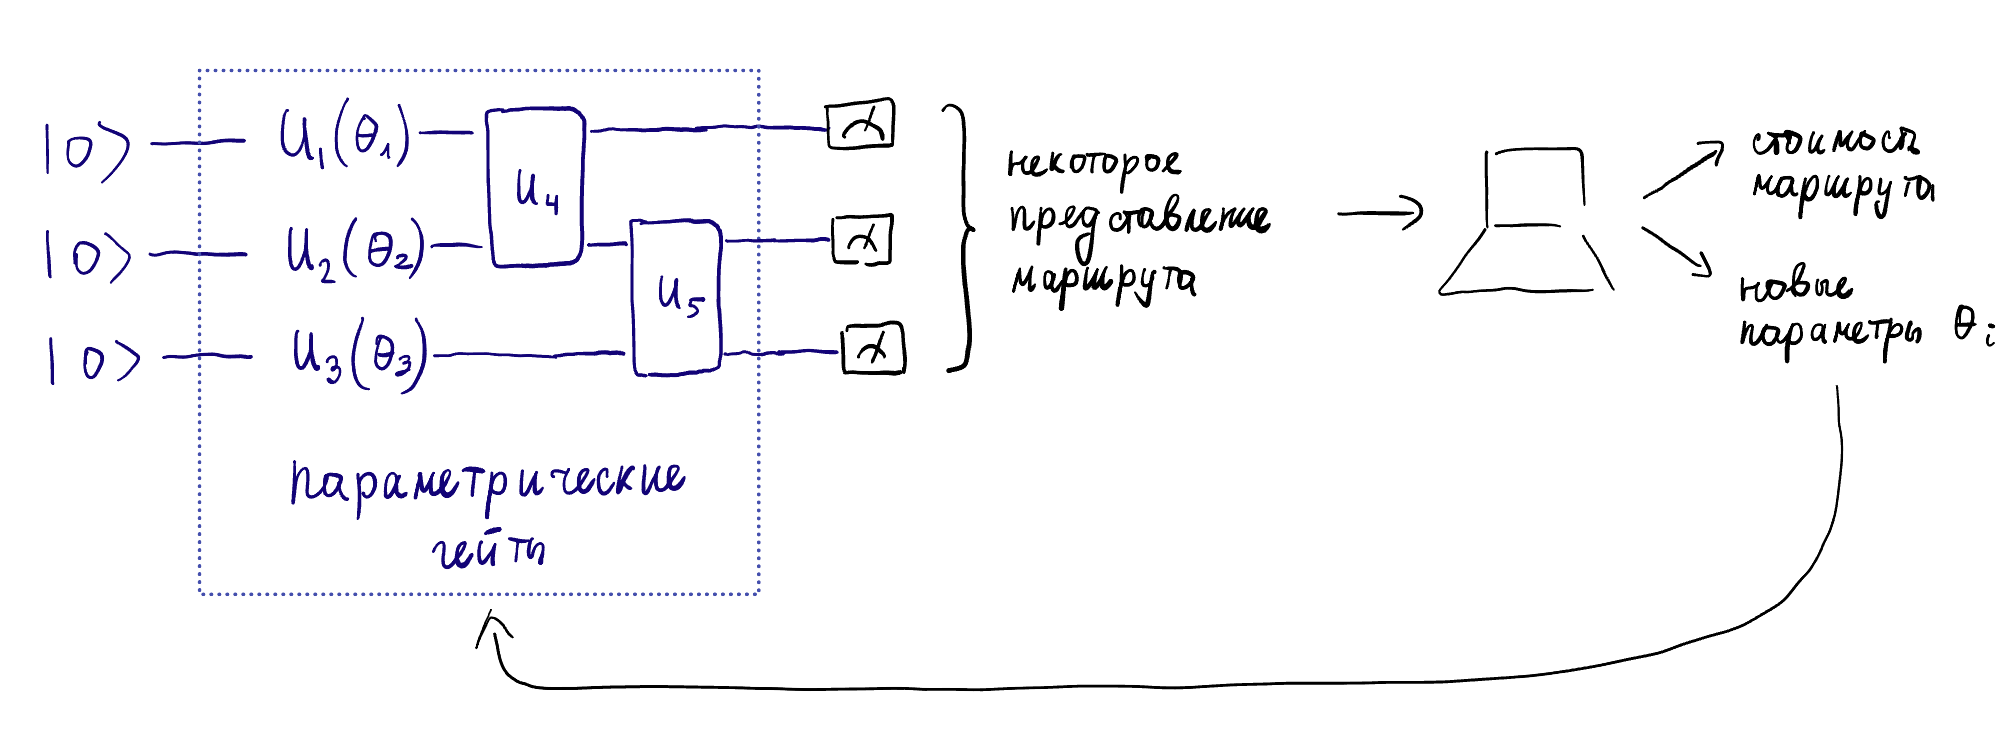 |0⟩ U₁(θ₁)
U₄
|0⟩ U₂(θ₂)
U₅
|0⟩ U₃(θ₃)
параметрические
гейты
некоторое
представление
маршрута
стоимость
маршрута
новые
параметры θᵢ